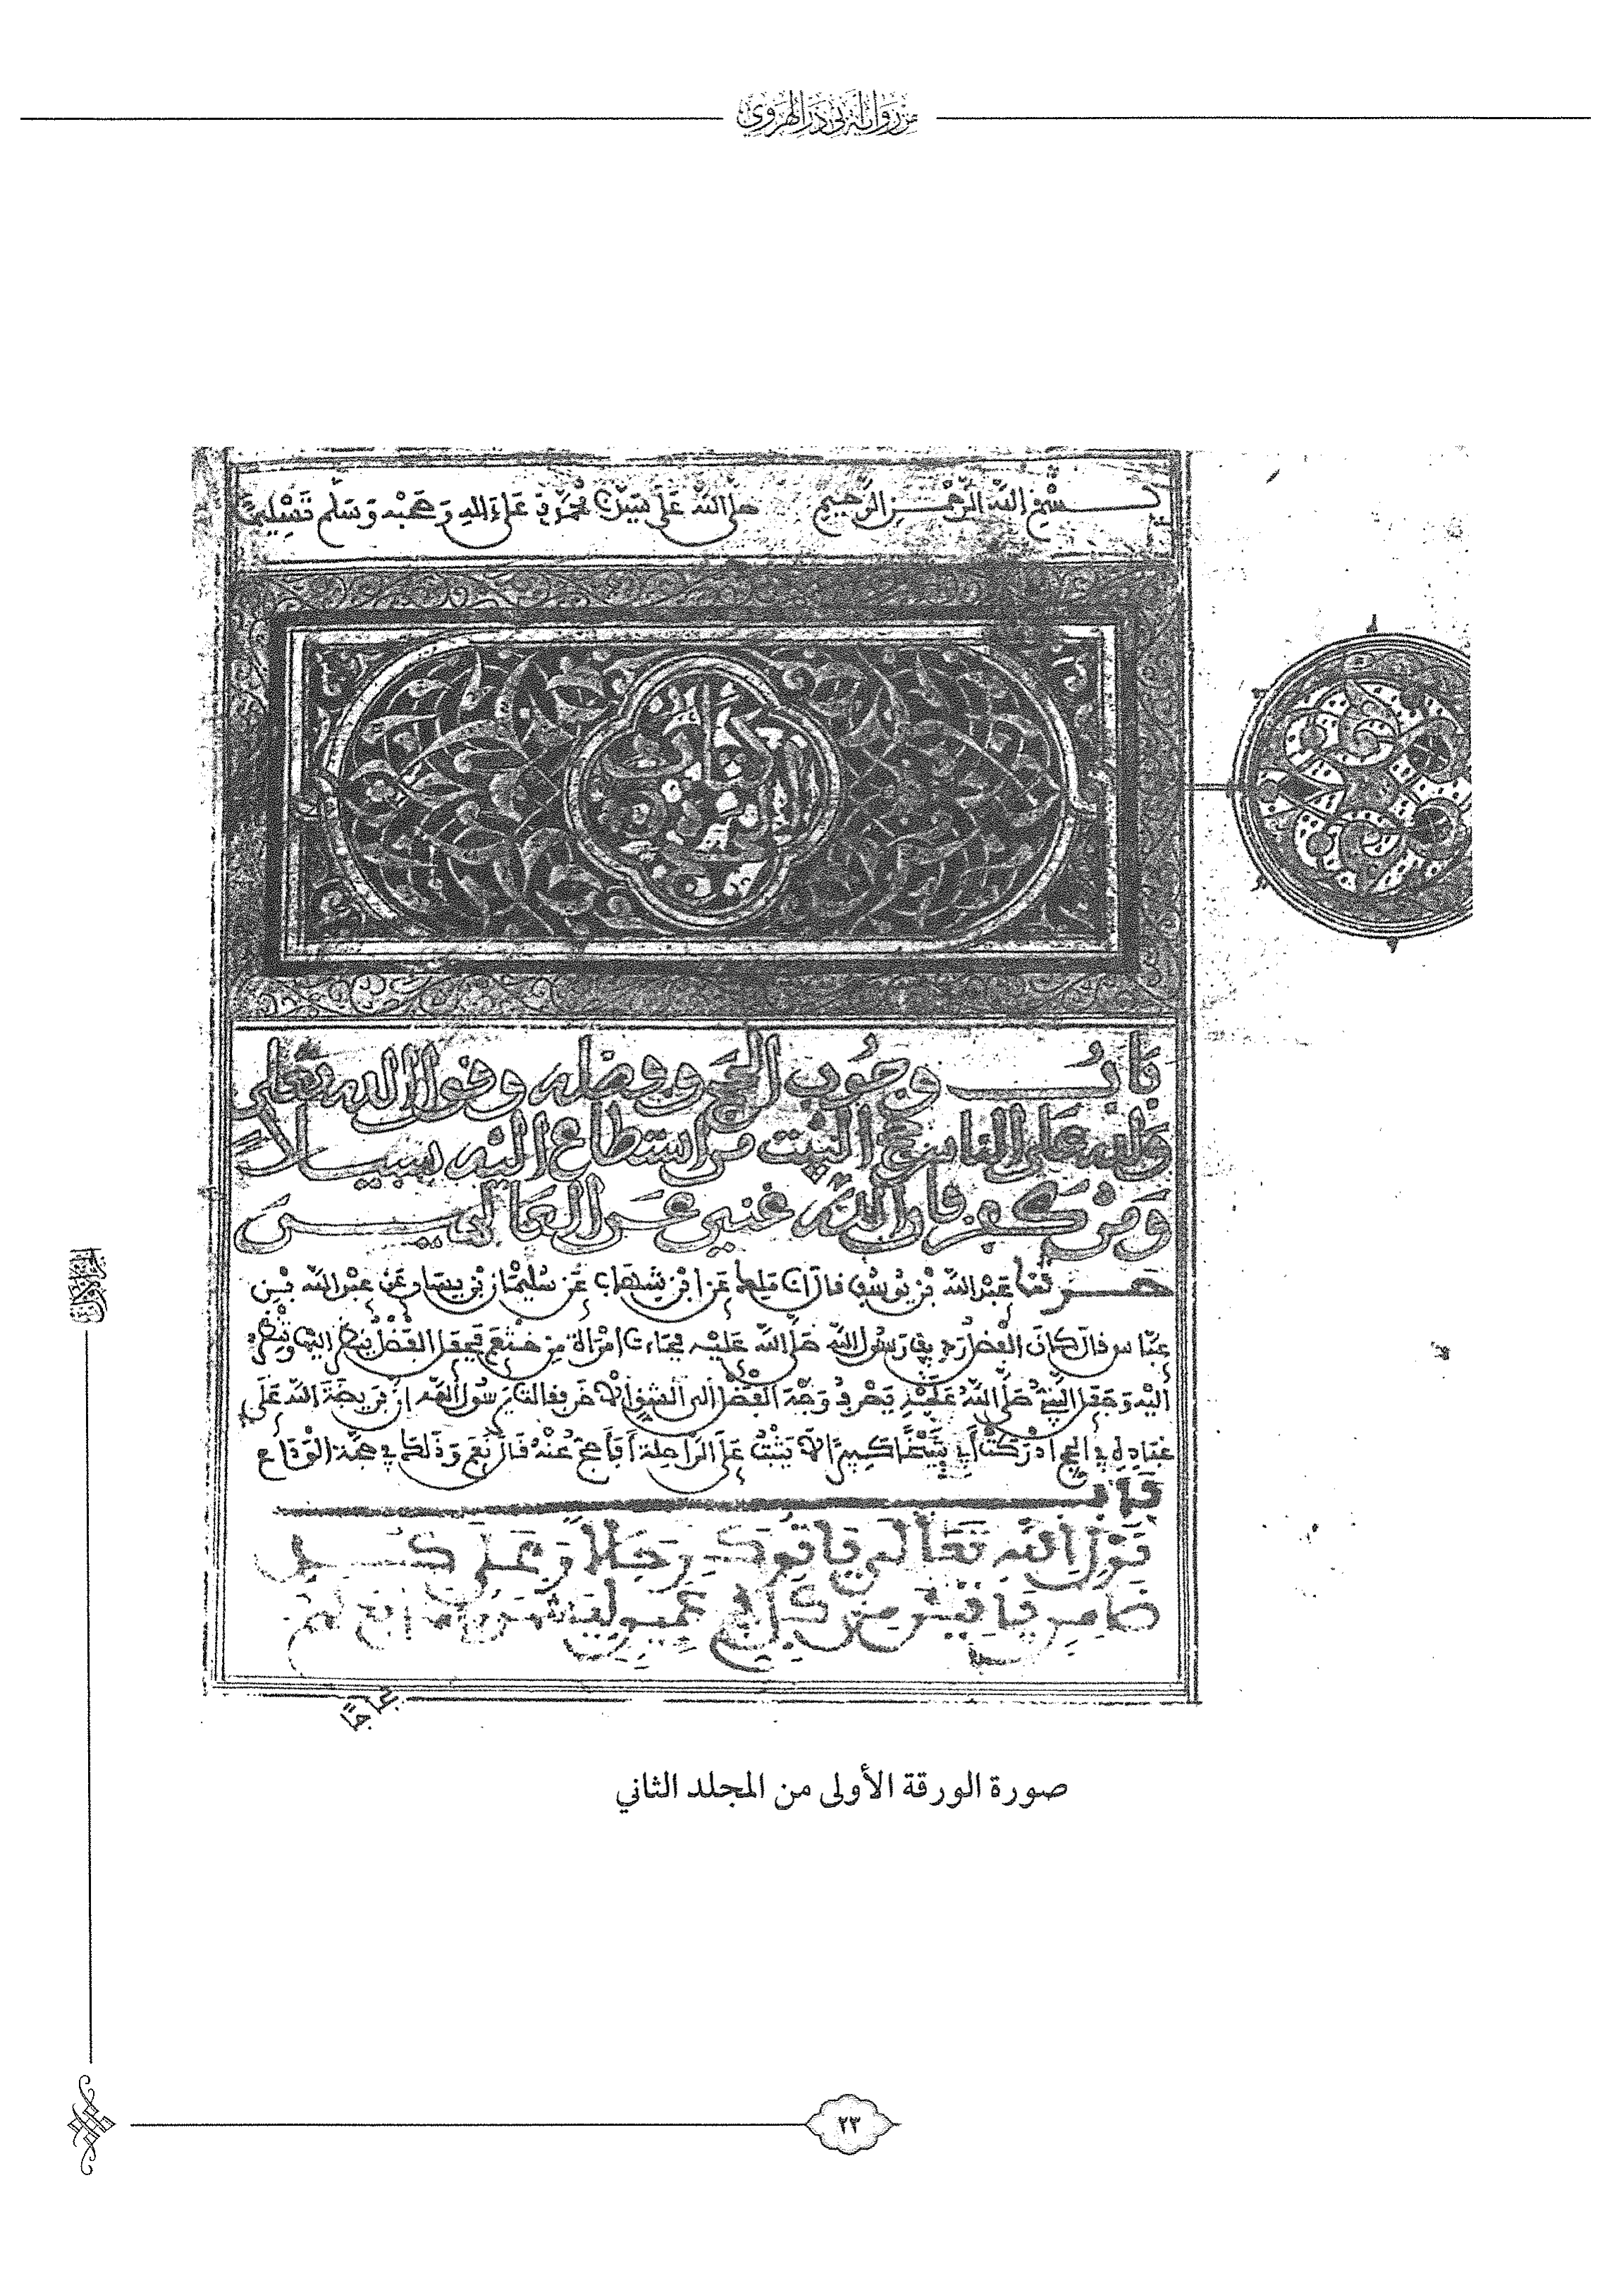 من رواية أبي ذر الهروي
بسم الله الرحمن الرحيم صلى الله على سيدنا محمد وعلى ءاله وصحبه وسلم تسليما
باب وجوب الحج وفضله وقول الله تعلى
ولله على الناس حج البيت من استطاع إليه سبيلا
ومن كفر فإن الله غني عن العالمين
حدثنا عبد الله بن يوسف قال أنا ملك عن ابن شهاب عن سليمان بن يسار عن عبد الله بن
عباس قال كان الفضل رديف رسول الله صلى الله عليه فجاءت امرأة من خثعم فجعل الفضل ينظر إليها وتنظر
إليه وجعل النبي صلى الله عليه يصرف وجه الفضل إلى الشق الآخر فقالت يرسول الله إن فريضة الله على
عباده في الحج أدركت أبي شيخا كبيرا لا يثبت على الراحلة أفأحج عنه قال نعم وذلك في حجة الوداع
باب
قول الله تعالى ياتوك رجالا وعلى كل
ضامر ياتين من كل فج عميق ليشهدوا منافع لهم
فجاجا
صورة الورقة الأولى من المجلد الثاني
٢٣